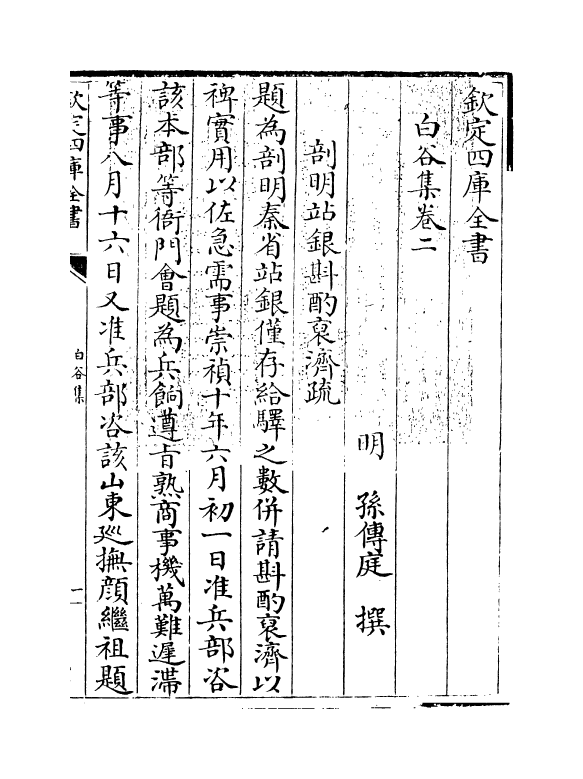 欽定四庫全書
白谷集卷二
明 孫傳庭 撰
剖明站銀斟酌裒濟疏
題為剖明秦省站銀僅存給驛之數併請斟酌裒濟以
裨實用以佐急需事崇禎十年六月初一日准兵部咨
該本部等衙門會題為兵餉遵旨熟商事機萬難遲滯
等事八月十六日又准兵部咨該山東廵撫顔繼祖題
欽定四庫全書
白谷集
一